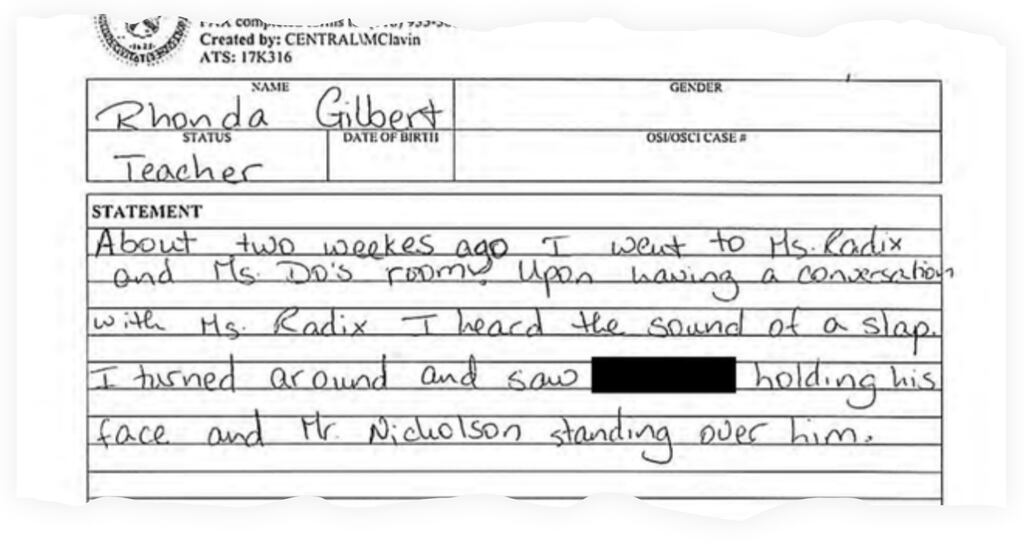 Created by: CENTRAL\MClavin
ATS: 17K316
NAME
GENDER
Rhonda Gilbert
STATUS
DATE OF BIRTH
OSI/OSCI CASE #
Teacher
STATEMENT
About two weekes ago I went to Ms. Radix
and Ms. Do's room. Upon having a conversation
with Ms. Radix I heard the sound of a slap.
I turned around and saw holding his
face and Mr. Nicholson standing over him.